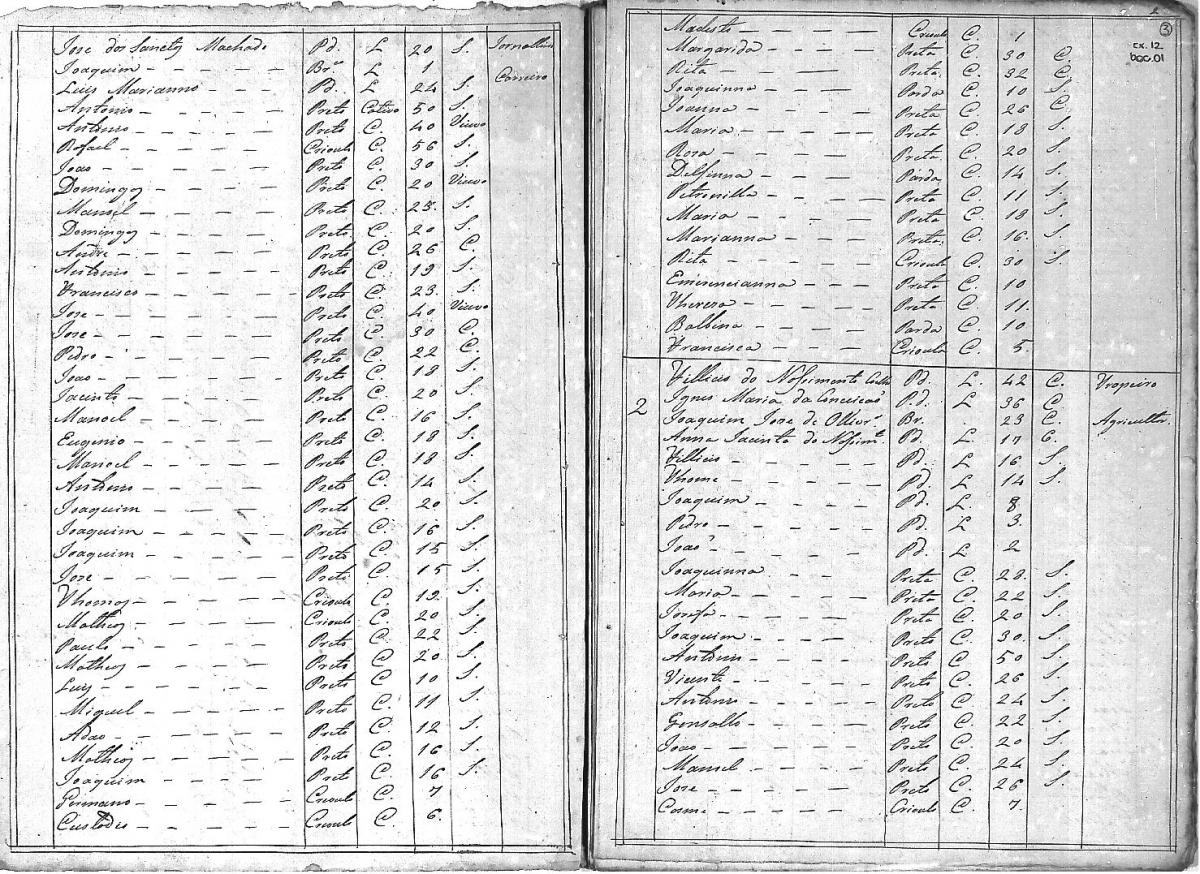 Jose dos Sanctos Machado Pd. L 20 S. Jornalleiro
Joaquim Brco L 1
Luis Marianno Pd. L 24 S. Correiro
Antonio Preto Cativo 50 S.
Antonio Preto C. 40 Viuvo
Rafael Crioulo C. 56 S.
Joao Preto C. 30 S.
Domingos Preto C. 20 Viuvo
Manoel Preto C. 25. S.
Domingos Preto. C. 20 S.
Andre Preto C. 26 C.
Antonio Preto C. 19 S.
Francisco Preto C. 23. S.
Jose Preto C. 40 Viuvo
Jose Preto C. 30 C.
Pedro Preto C. 22 C.
Joao Preto C. 18 S.
Jacinto Preto C. 20 S.
Manoel Preto C. 16 S.
Eugenio Preto C. 18 S.
Manoel Preto C. 18 S.
Antonio Preto C. 14 S.
Joaquim Preto C. 20 S.
Joaquim Preto C. 16 S.
Joaquim Preto C. 15 S.
Jose Preto C. 15 S.
Thomas Crioulo C. 19. S.
Matheos Crioulo C. 20 S.
Paulo Preto C. 22 S.
Matheos Preto C 20. S.
Luis Preto C. 10 S.
Miguel Preto C. 11 S.
Adao Preto C. 12 S.
Matheos Preto C. 16 S.
Joaquim Preto C. 16 S.
Germano Crioulo C. 7
Custodio Crioulo C. 6.
3
cx. 12
doc. 01
Modesto Crioulo C. 1
Margarida Preta C. 30 C.
Rita Preta. C. 32 C.
Joaquinna Parda C. 10 S.
Joanna Preta C. 26 C.
Maria Preta C. 18 S.
Rosa Preta C. 20 S.
Delfinna Parda C. 14 S.
Petronilla Preta C. 11 S.
Maria Preta C. 18 S.
Marianna Preta. C. 16. S.
Rita Crioula C. 30 S.
Emerencianna Preta C. 10
Thereza Preta C. 11.
Balbina Parda C. 10
Francisca Crioula C. 5.
2
Fillicio do Nassimento Pd. L. 42 C. Tropeiro
Ignes Maria da Conceicao Pd. L 36 C.
Joaquim Jose de Olivrª Br. 23 C. Agricultor.
Anna Jacinta do Nassimto Pd. L 17 C.
Fillicio Pd. L 16 S.
Thome Pd. L 14 S.
Joaquim Pd. L. 8
Pedro Pd. L 3.
Joao Pd. L 2
Joaquinna Preta C. 28. S.
Maria Preta C. 22 S.
Josefa Preta C. 20 S.
Joaquim Preto C. 30. S.
Antonio Preto C. 50 S.
Vicente Preto C. 26 S.
Antonio Preto C. 24 S.
Gonsallo Preto C. 22 S.
Joao Preto C. 20 S.
Manoel Preto C. 24 S.
Jose Preto C. 26 S.
Cosme Crioulo C. 7